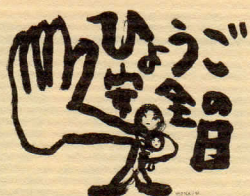 ひょうご
安全
の日